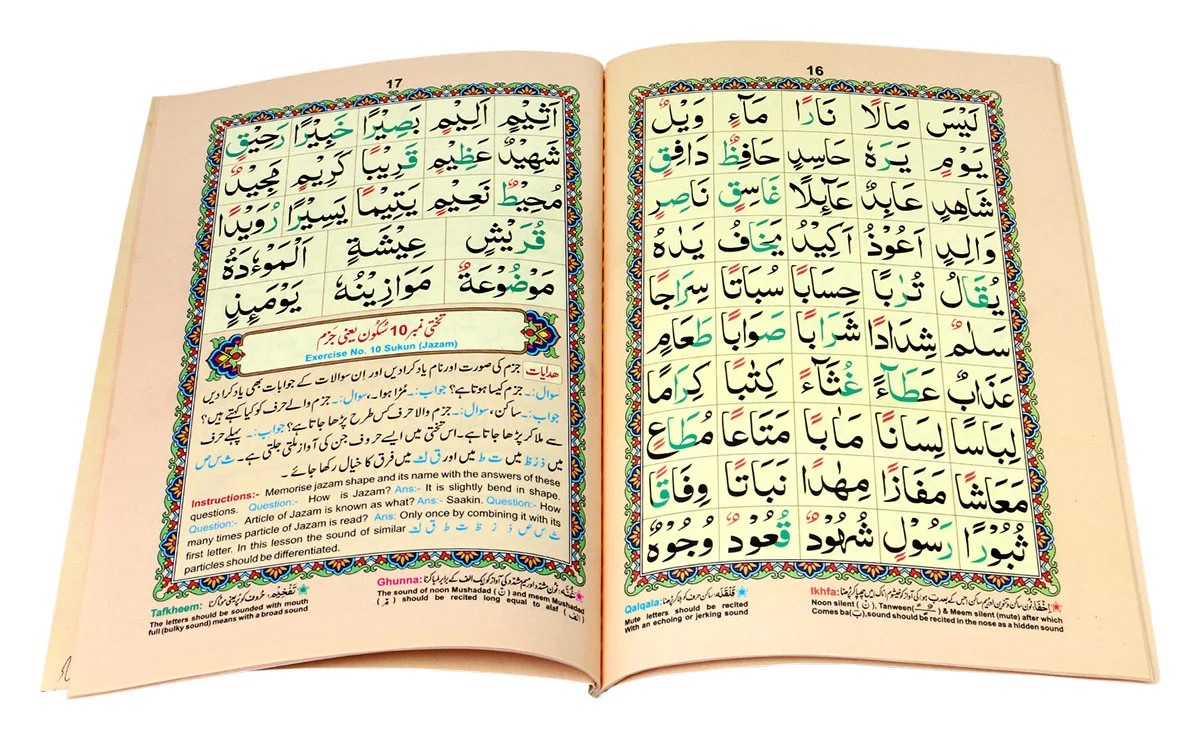 16
لَيْسَ مَالًا نَارًا مَآءٍ وَيْلٌ
يَوْمٍ يَرَهٗ حَاسِدٍ حَافِظٌ دَافِقٍ
شَاهِدٍ عَابِدٌ عَآئِلًا غَاسِقٍ نَاصِرٍ
وَالِدٍ اَعُوْذُ اَكِيْدُ يَخَافُ يَدٰهُ
يُقَالُ تُرٰبًا حِسَابًا سُبَاتًا سِرَاجًا
سَلٰمٌ شِدَادًا شَرَابًا صَوَابًا طَعَامٍ
عَذَابٌ عَطَآءً غُثَآءً كِتٰبًا كِرَامًا
لِبَاسًا لِسَانًا مَاٰبًا مَتَاعًا مُطَاعٍ
مَعَاشًا مَفَازًا مِهٰدًا نَبَاتًا وِفَاقًا
ثُبُوْرًا رَسُوْلٍ شُهُوْدٌ قُعُوْدٌ وُجُوْهٌ
Ikhfa:
Noon silent (نْ), Tanween & Meem silent (mute) after which
Comes ba(ب),sound should be recited in the nose as a hidden sound
قَلْقَلَہ: ساکن حرف کو ہلا کر پڑھنا
Qalqala:
Mute letters should be recited
With an echoing or jerking sound
17
اَثِيْمٍ اَلِيْمٍ بَصِيْرًا خَبِيْرًا رَحِيْقٍ
شَهِيْدٌ عَظِيْمٍ قَرِيْبًا كَرِيْمٍ مَجِيْدٌ
مُحِيْطٌ نَعِيْمٍ يَتِيْمًا يَسِيْرًا رُوَيْدًا
قُرَيْشٍ عِيْشَةٍ اَلْمَوْءٗدَةُ
مَوْضُوْعَةٌ مَوَازِيْنُهٗ يَوْمَئِذٍ
تختی نمبر 10 سُکُون یعنی جَزم
Exercise No. 10 Sukun (Jazam)
ھدایات جزم کی صورت اور نام یاد کرادیں اور اِن سوالات کے جوابات بھی یاد کرادیں
سوال:۔ جزم کیسا ہوتا ہے؟ جواب:۔ مُڑا ہوا۔ سوال:۔ جزم والے حرف کو کیا کہتے ہیں؟
جواب:۔ ساکن، سوال:۔ جزم والا حرف کس طرح پڑھا جاتا ہے؟ جواب:۔ پہلے حرف
سے ملا کر پڑھا جاتا ہے۔ اس تختی میں ایسے حروف جن کی آواز ملتی جلتی ہے۔ ث س ص
میں ذ ز ظ میں ت ط میں اور ق ك میں فرق کا خیال رکھا جائے۔
Instructions:- Memorise jazam shape and its name with the answers of these
questions. Question:- How is Jazam? Ans:- It is slightly bend in shape.
Question:- Article of Jazam is known as what? Ans:- Saakin. Question:- How
many times particle of Jazam is read? Ans: Only once by combining it with its
first letter. In this lesson the sound of similar ث س ص ذ ز ظ ت ط ق ك
particles should be differentiated.
غُنَّہ: نون مشدّد اور میم مشدّد کی آواز کو ایک الف کے برابر لمبا کرنا
Ghunna:
The sound of noon Mushadad (نّ) and meem Mushadad
(مّ) should be recited long equal to alaf (الف)
تَفْخِيْم: حروف کو پُر یعنی موٹا کرنا
Tafkheem:
The letters should be sounded with mouth
full (bulky sound) means with a broad sound